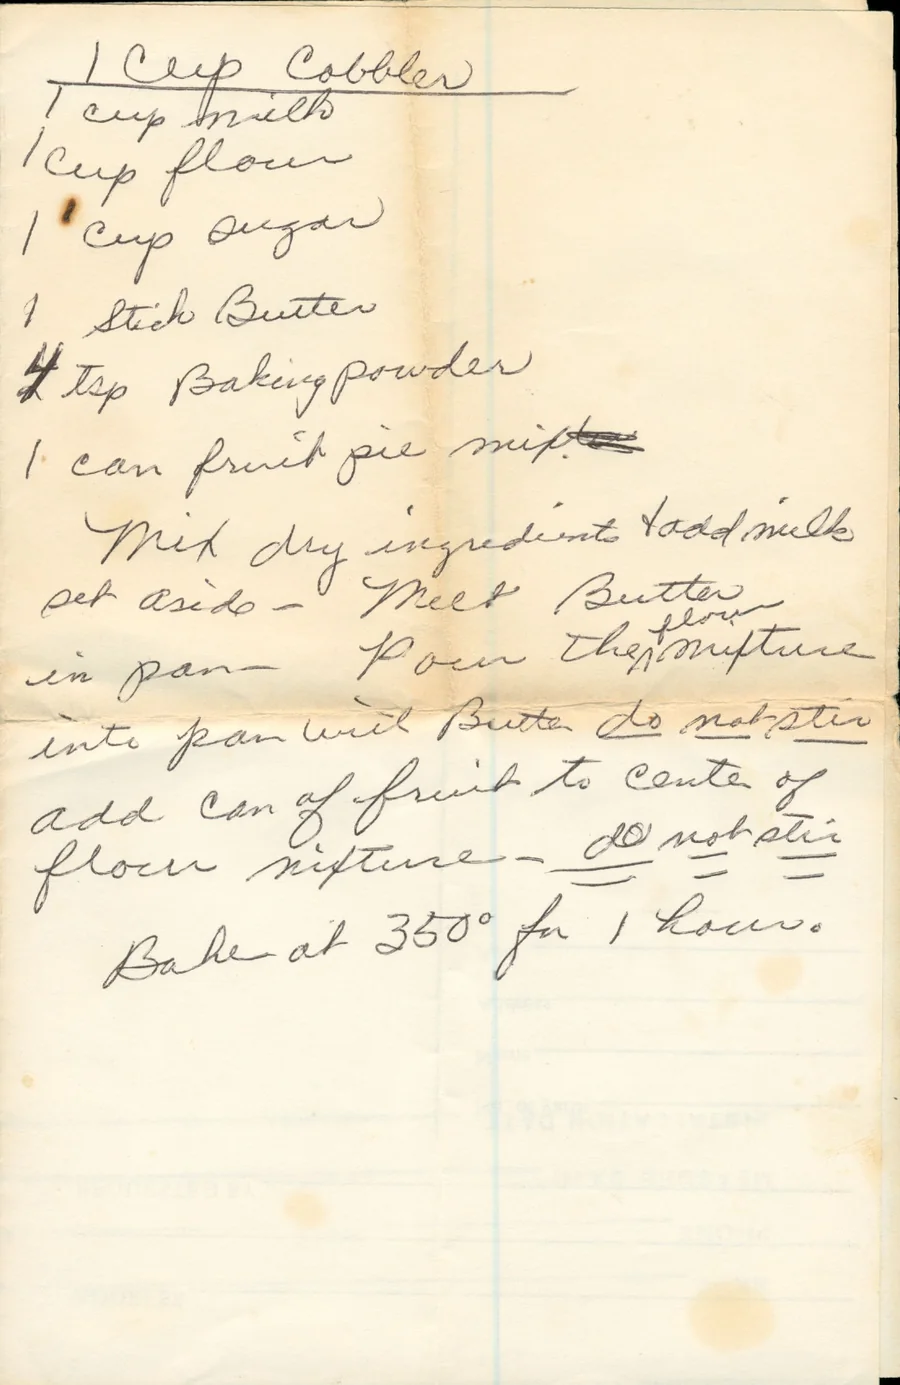 1 Cup Cobbler
1 cup milk
1 cup flour
1 cup sugar
1 Stick Butter
4 tsp Baking powder
1 can fruit pie mix
Mix dry ingredients + add milk
set aside - Melt Butter
in pan - Pour the flour mixture
into pan with Butter do not stir
add can of fruit to center of
flour mixture - do not stir
Bake at 350° for 1 hour.